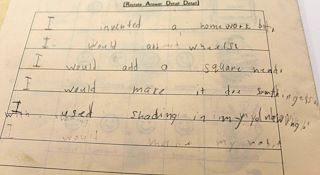 (Restate Answer Detail Detail)
I invented a homework bot.
I would add wheels.
I would add a square head.
I would make it do
I used shading in my
I would my